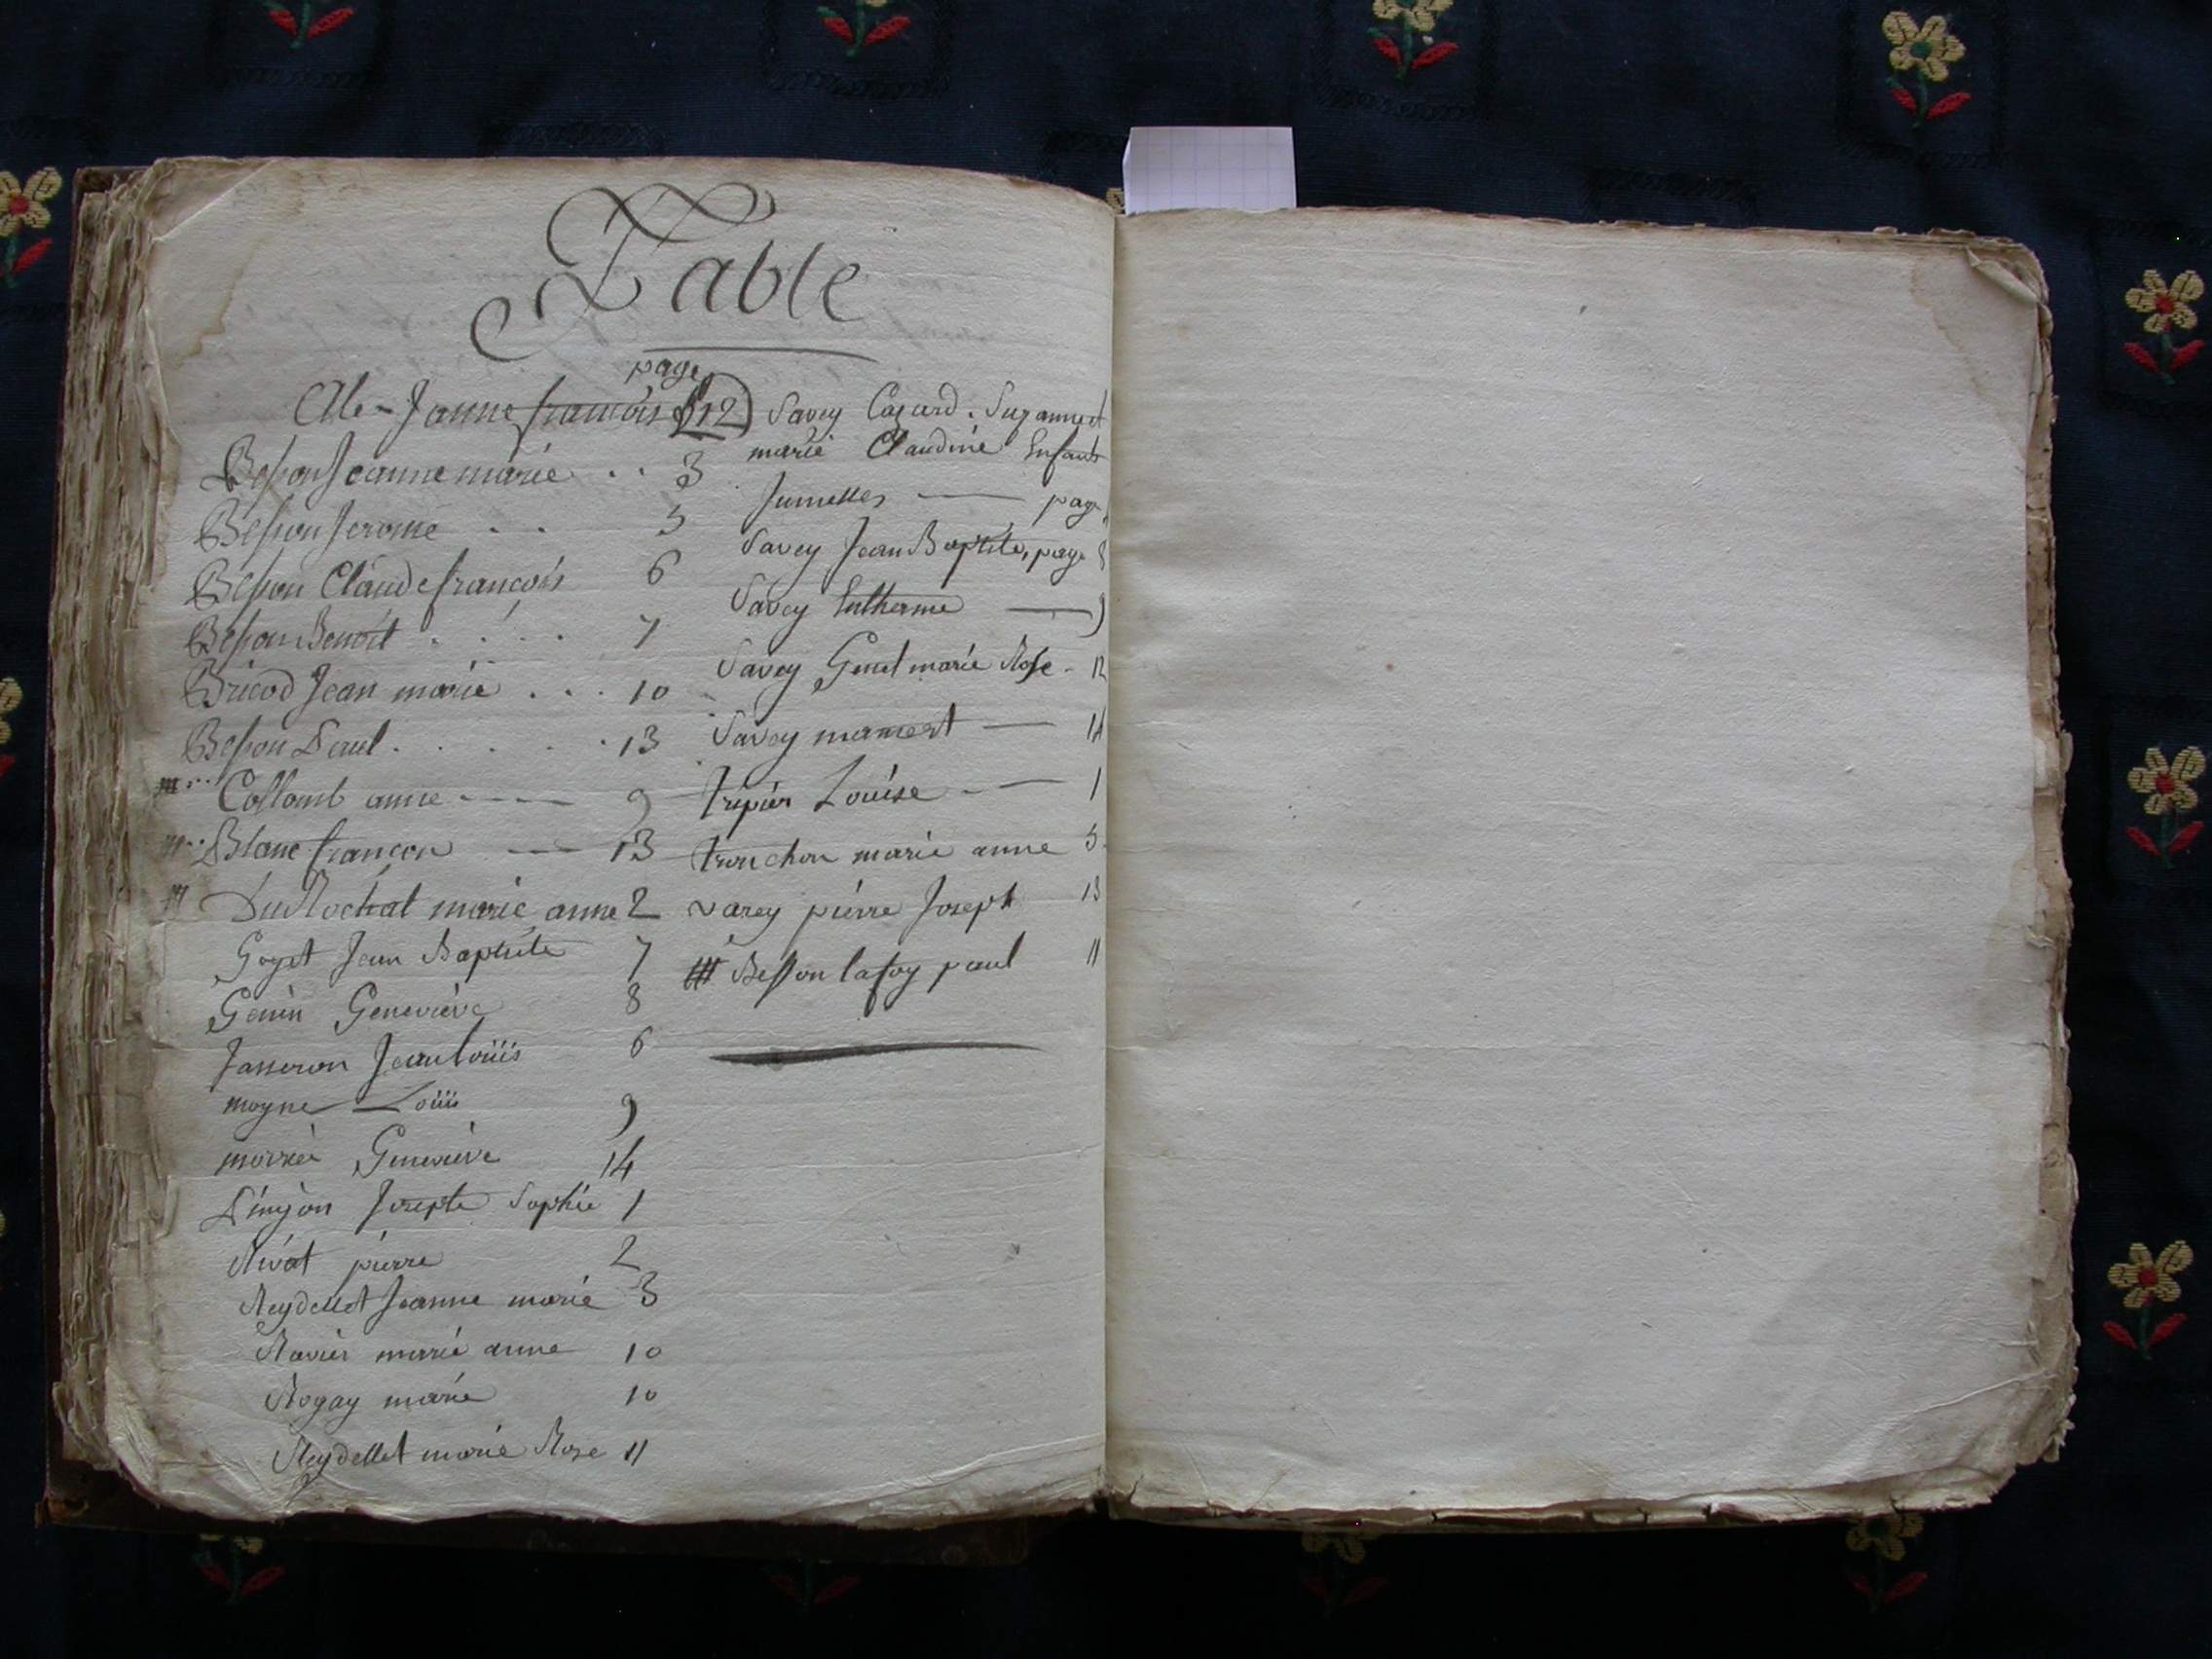 Table
page
Janne francois 12
Besson Jeanne marie . . 3
Besson Jerome . . 5
Besson Claude francois 6
Besson Benoit . . . . 7
Bricod Jean marie . . . 10
Besson Paul . . . . . 13
Collomb anne ---- 9
Blanc francon --- 13
DuRochat marie anne 2
Goyet Jean Baptiste 7
Genin Geneviève 8
Jasseron Jean louïis 6
moyne Loüis 9
Geneviève 14
Josepte Sophie 1
Rivat pierre 2
Reydellet Jeanne marie 3
Ravier marie anne 10
Rogay marie 10
Reydellet marie Rose 11
Savey Cazard . Suzanne et
marie Claudine Enfants
Jumelles — page
Savey Jean Baptiste, page 8
Savey — 9
Savey Genet marie Rose - 12
Savey mamert — 14
tripier Louise — 1
tronchon marie anne 5
varey pierre Joseph 13
Besson lafoy paul 11